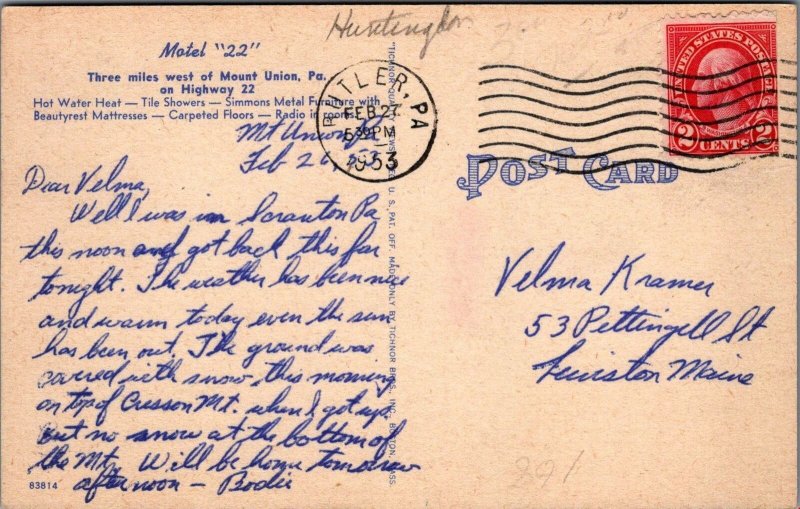 Huntingdon
Motel "22"
Three miles west of Mount Union, Pa.
on Highway 22
Hot Water Heat — Tile Showers — Simmons Metal Furniture with
Beautyrest Mattresses — Carpeted Floors — Radio in rooms.
Mt Union Pa
Feb 26
Dear Velma,
Well I was in Scranton Pa
this noon and got back this far
tonight. The weather has been nice
and warm today even the sun
has been out. The ground was
covered with snow this morning
on top of Cresson Mt. when I got up
but no snow at the bottom of
the Mt. Will be home tomorrow
afternoon — Bodie
83814
BUTLER, PA
FEB 27
5 30 PM
1953
UNITED STATES POSTAGE
2 CENTS 2
POST CARD
Velma Kramer
53 Pettingell St
Lewiston Maine
291